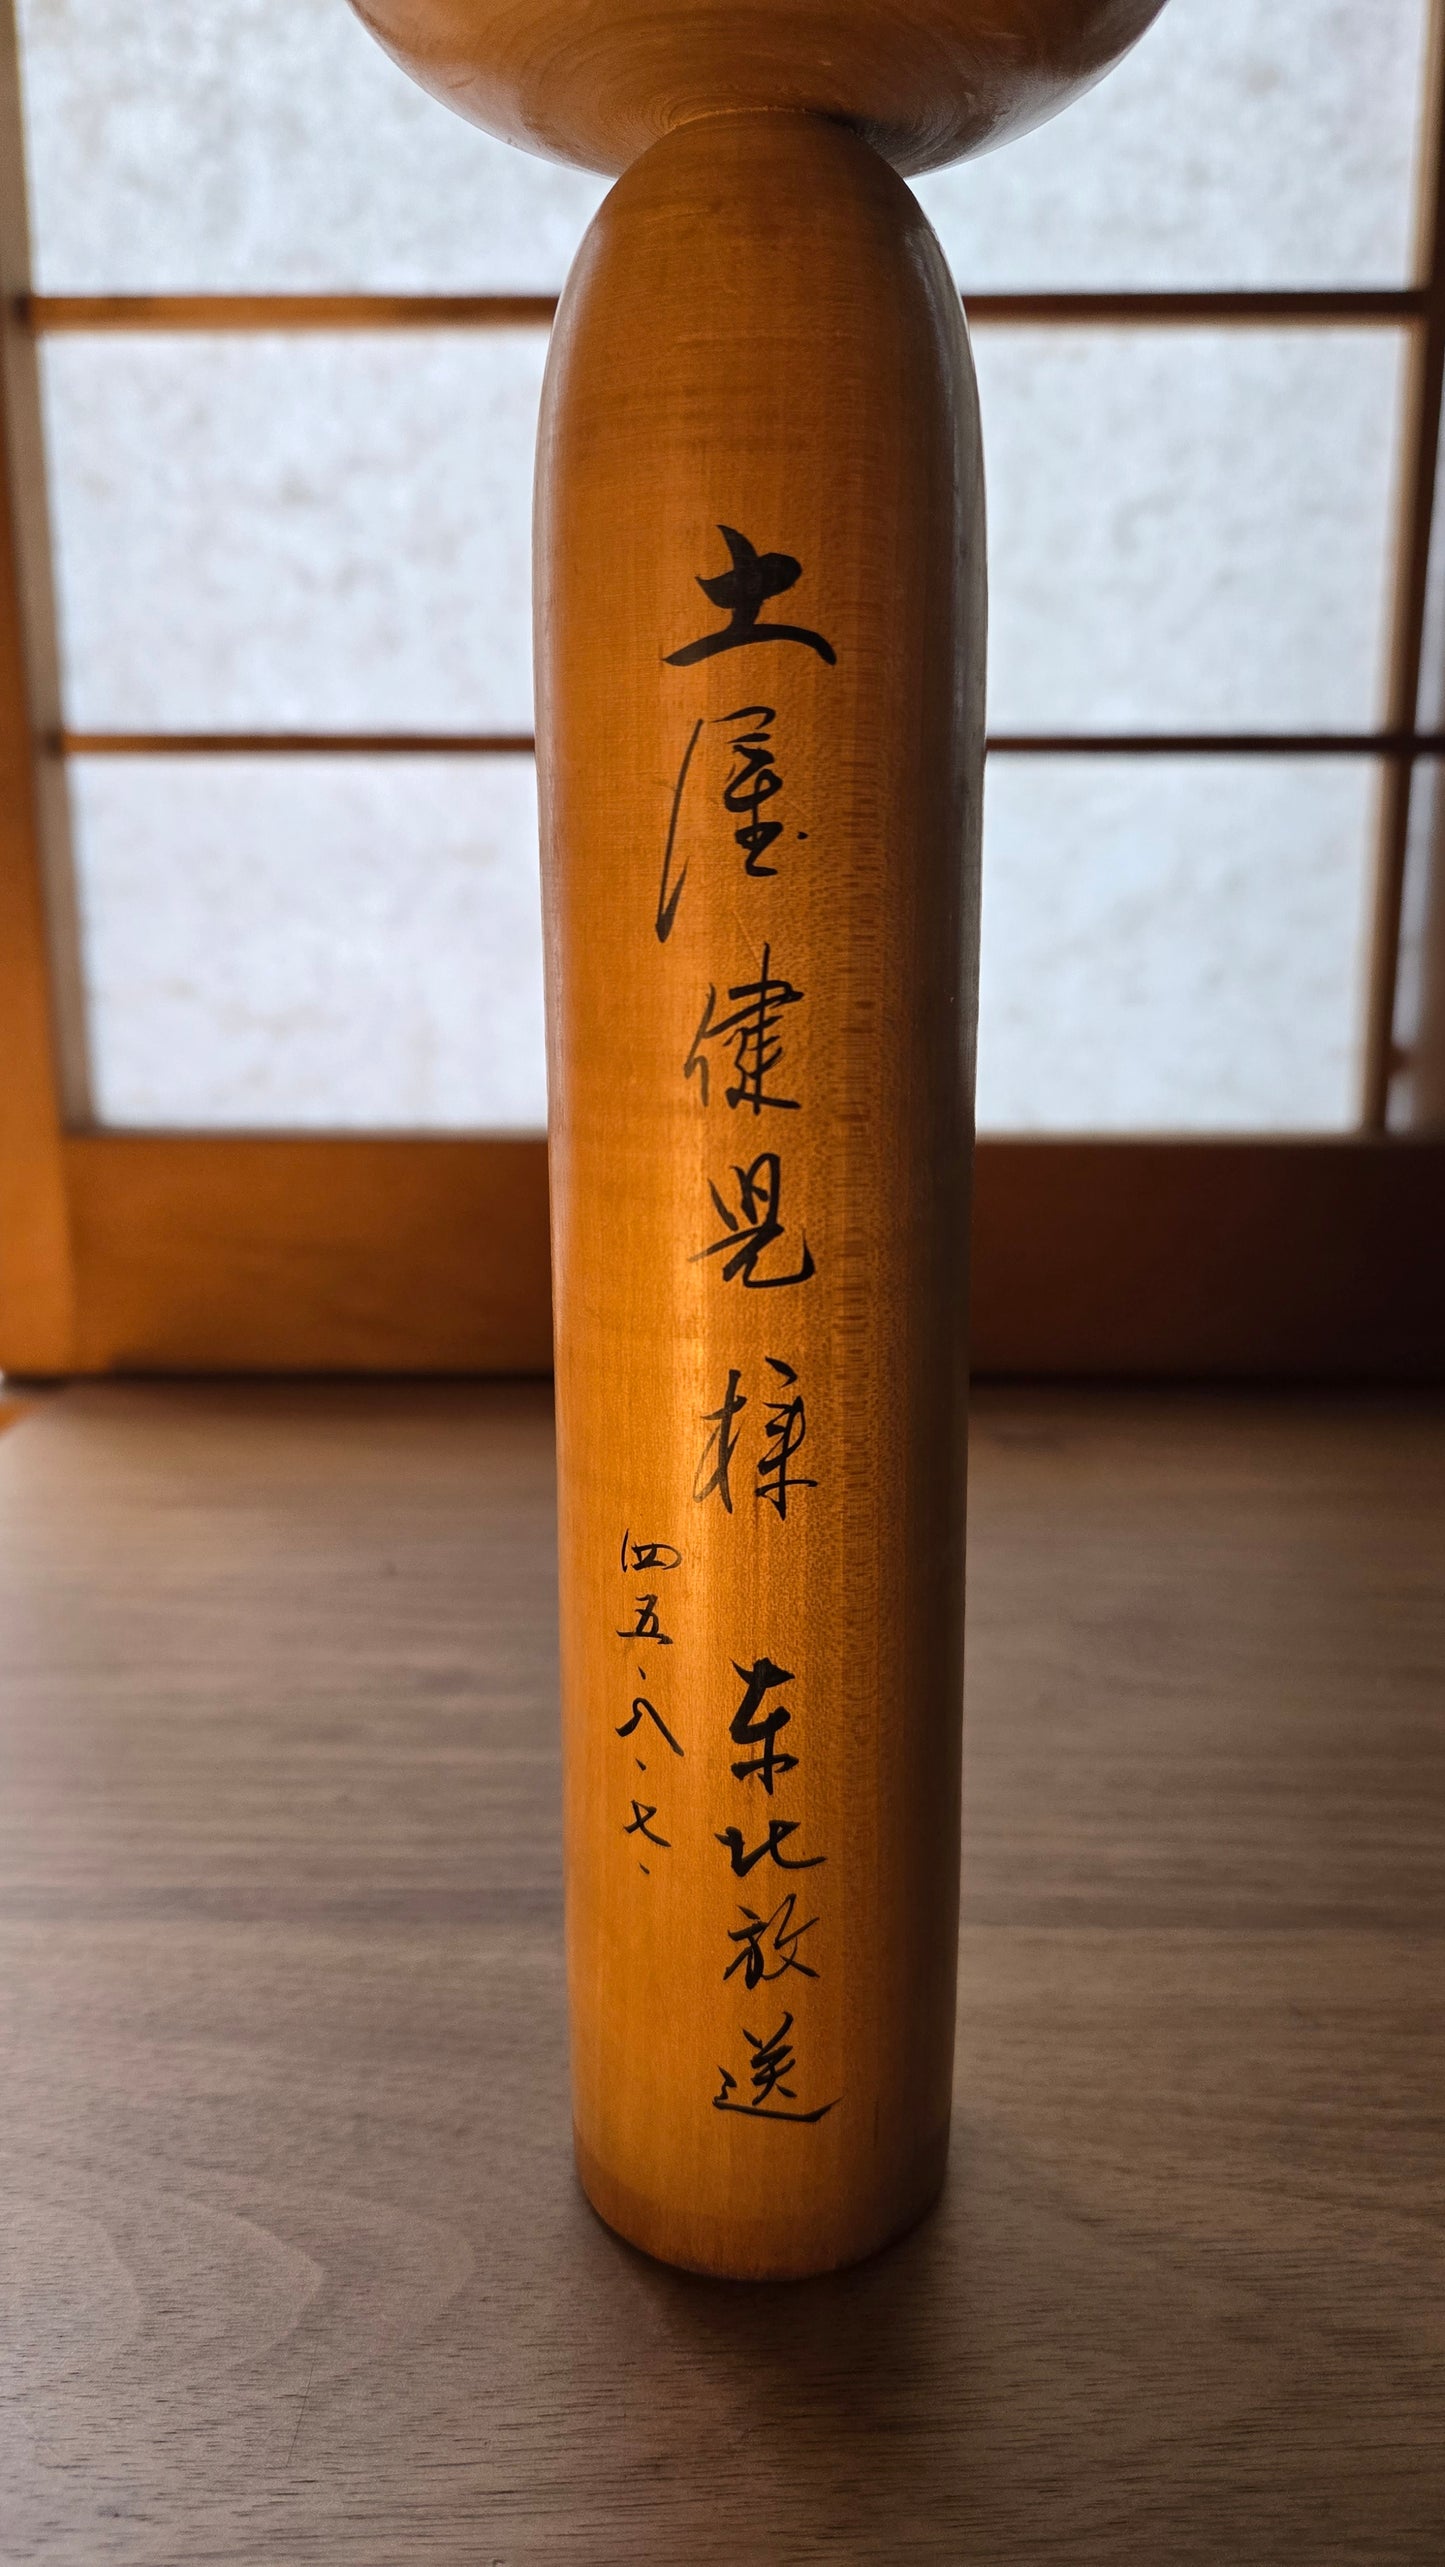 土屋健晃様
东北放送
四五、八、七、